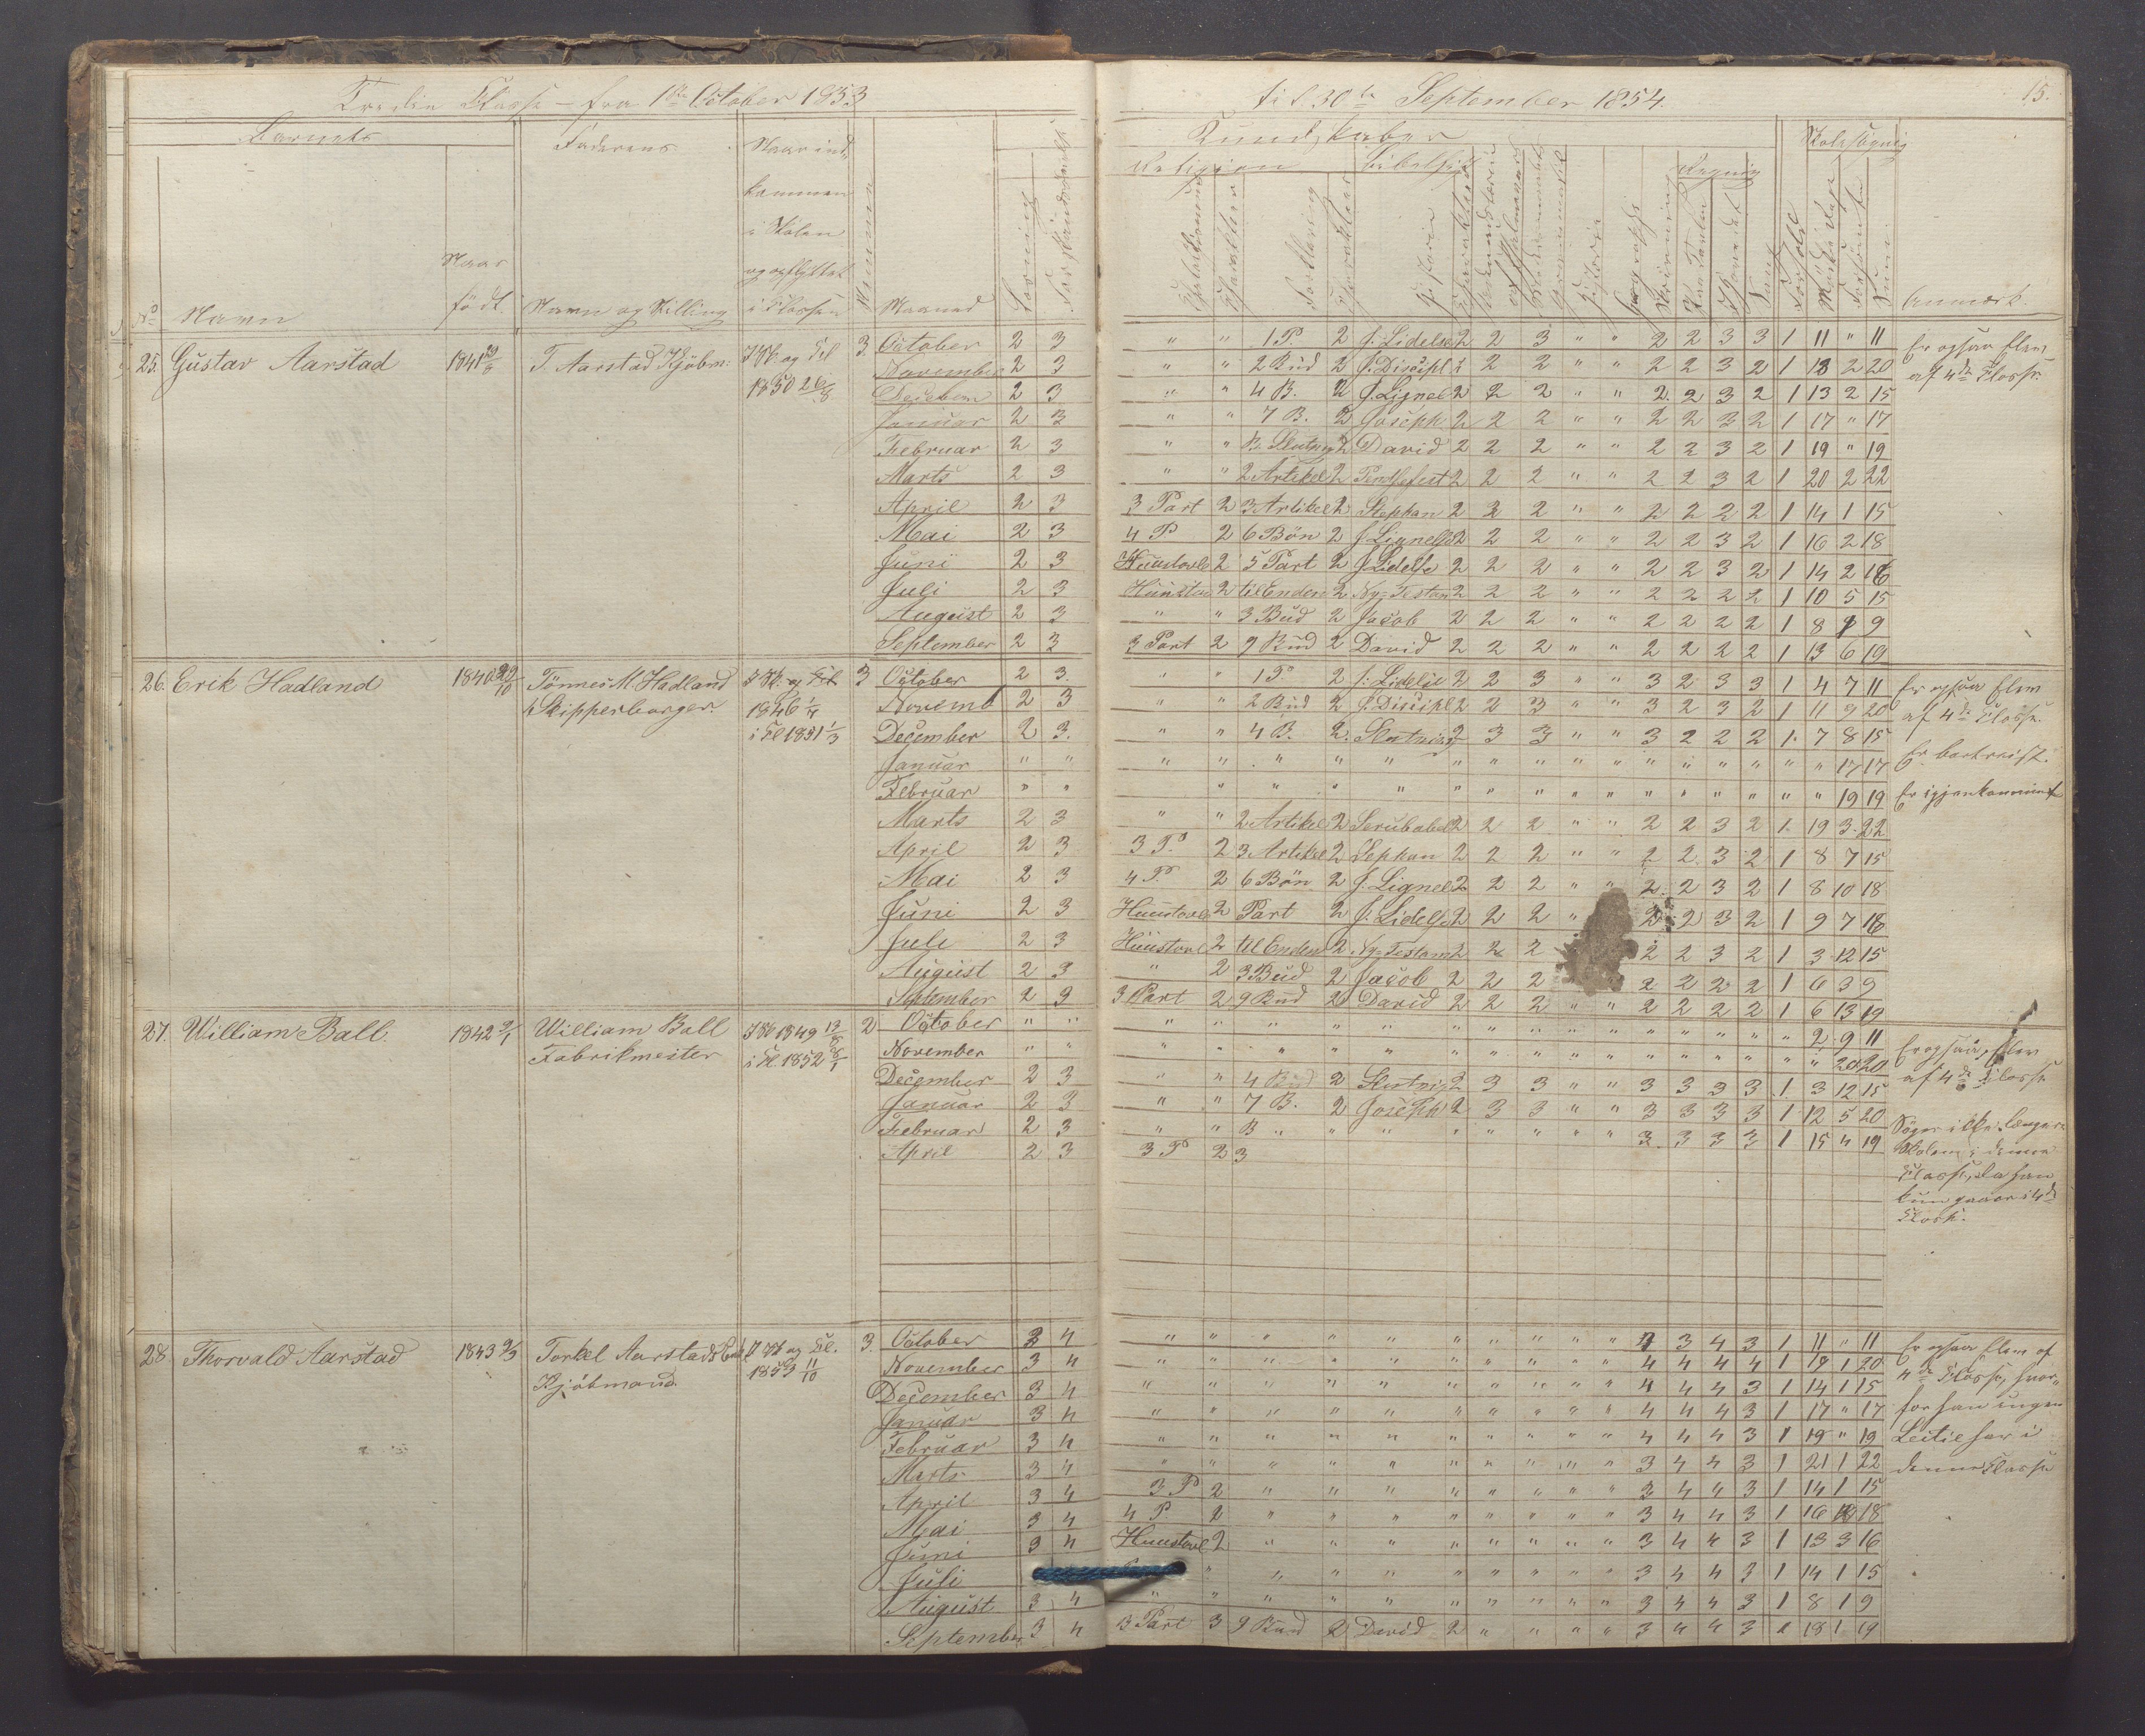 Tredie Classe – fra 1ste October 1853
til 30te September 1854.
15.
Barnets
Faderens
Naar ind-
kommen
i Skolen
og opflyttet
i Classen
Naar
født.
No
Navn
Navn og Stilling
Maaned
Kundskaber
Religion
Skolesøgning
Anmærk.
25. Gustav Aarstad 1841 T. Aarstad Kjöbm:
1850 26/8
3.
October 2 3 " " 1 P. 2 J. Lidelse 2 2 3 " " 2 2 3 3 1 11 " 11
November 2 3 " " 2 Bud 2 J. Discipl 2 2 2 " " 2 2 3 2 1 18 2 20
Decebem 2 3 " " 4 B. 2 J. Lignel 2 2 2 " " 2 2 3 2 1 13 2 15
Januar 2 3 " " 7 B. 2 Joseph 2 2 2 " " 2 2 2 2 1 17 " 17
Februar 2 3 " " B. Slutnig 2 David 2 2 2 " " 2 2 3 2 1 19 " 19
Marts 2 3 " " 2 Artikel 2 Pindsefest 2 2 2 " " 2 2 3 2 1 20 2 22
April 2 3 3 Part 2 3 Artikel 2 Stephan 2 2 2 " " 2 2 2 2 1 14 1 15
Mai 2 3 4 P 2 6 Bön 2 J. Lignelse 2 2 2 " " 2 2 3 2 1 16 2 18
Juni 2 3 Huustavle 2 5 Part 2 J. Lidelse 2 2 2 " " 2 2 3 2 1 14 2 16
Juli 2 3 Huusta 2 til Enden 2 Ny-Testam 2 2 2 " " 2 2 2 2 1 10 5 15
August 2 3 " " 3 Bud 2 Jacob 2 2 2 " " 2 2 2 2 1 8 1 9
September 2 3 3 Part 2 9 Bud 2 David 2 2 2 " " 2 2 2 2 1 13 6 19
Er ogsaa Elev
af 4de Classe.
26. Erik Hadland 1840 29/10 Tönnes M. Hadland
Skipperborger.
1846 1/4
i Cl 1851 1/3
3
October 2 3. " " 1 P. 2 J. Lidelse 2 2 3 " " 3 2 3 3 1 4 7 11
Novemb 2 3 " " 2 Bud 2 J. Discipl 2 2 3 " " 3 2 3 2 1 11 9 20
December 2 3. " " 4 B. 2. Slutnig 2 3 3 " " 3 2 2 2 1. 7 8 15
Januar " " " " " " " " " " " " " " " " " " 17 17
Februar " " " " " " " " " " " " " " " " 19 19
Marts 2 3 " " 2 Artikel 2 Serubabel 2 2 2 " " 2 2 3 2 1. 19 3 22
April 2 3 3 P. 2 3 Artikel 2 Sephan 2 2 2 " " 2 2 3 2 1 8 7 15
Mai 2 3 4 P. 2 6 Bön 2 J. Lignel 2 2 2 " " 2 2 3 2 1 8 10 18
Juni 2 3 Huustavle 2 Part 2 J. Lidelse 2 2 2 " 2 2 3 2 1 9 7 16
Juli 2 3 Huustavl 2 til Enden 2 Ny-Testam 2 2 2 2 2 3 2 1 3 12 15
August 2 3 " 2 3 Bud 2 Jacob 2 2 2 2 2 2 2 1 6 3 9
September 2 3 3 Part 2 9 Bud 2 David 2 2 2 " " 2 2 2 2 1 6 13 19
Er ogsaa Elev
af 4de Classe.
Er bortreist.
Er igjenkommen
27. William Ball. 1842 William Ball
Fabrikmester
i Cl. 1852
2
October " " " " " " " " " " " " " " " " " 2 9 11
November " " " " " " " " " " " " " " " " " " 20 20
December 2 3 " " 4 Bud 2 Slutnig 2 3 3 " " 3 3 3 3 1 3 12 15
Januar 2 3 " " 7 B. 2 Joseph 2 3 3 " " 3 3 3 3 1 12 5 20
Februar 2 3 " " B " " " " " " " 3 3 3 3 1 15 4 19
April 2 3 3 P 2 3
Er ogsaa Elev
af 4de Classe
Söger ikke længere
Skolen i denne
Classe, da han
kun gaaer i 4de
Class.
28. Thorvald Aarstad 1843 9/3 Torkel Aarstad
Kjöbmand.
1853 11/10
3.
October 3 4 " " " " " " " " " " 4 3 4 3 1 11 " 11
November 3 4 " " " " " " " " " " 4 4 4 4 1 19 1 20
December 3 4 " " " " " " " " " " 4 4 4 3 1 14 1 15
Januar 3 4 " " " " " " " " " " 4 4 4 3 1 17 " 17
Februar 3 4 " " " " " " " " " " 4 4 4 3 1 19 " 19
Marts 3 4 " " " " " " " " " " 3 4 4 3 1 21 1 22
April 3 4 3 P 2 " " " " " " " " 3 4 4 3 1 14 1 15
Mai 3 4 4 P. 2 " " " " " " " " 3 4 4 3 1 16 18
Juni 3 4 Huustavl 2 " " " " " " " " 3 4 4 3 1 13 3 16
Juli " " " " " " " " " 3 4 4 3 1 14 1 15
August 3 4 " " " " " " " " " " 3 4 4 3 1 8 1 9
September 3 4 3 Part 3 9 Bud 2 David 2 " " " " 3 4 4 3 1 18 1 19
Er ogsaa Elev af
4de Classe, hvor-
for han ingen
Lectie har i
denne Classe